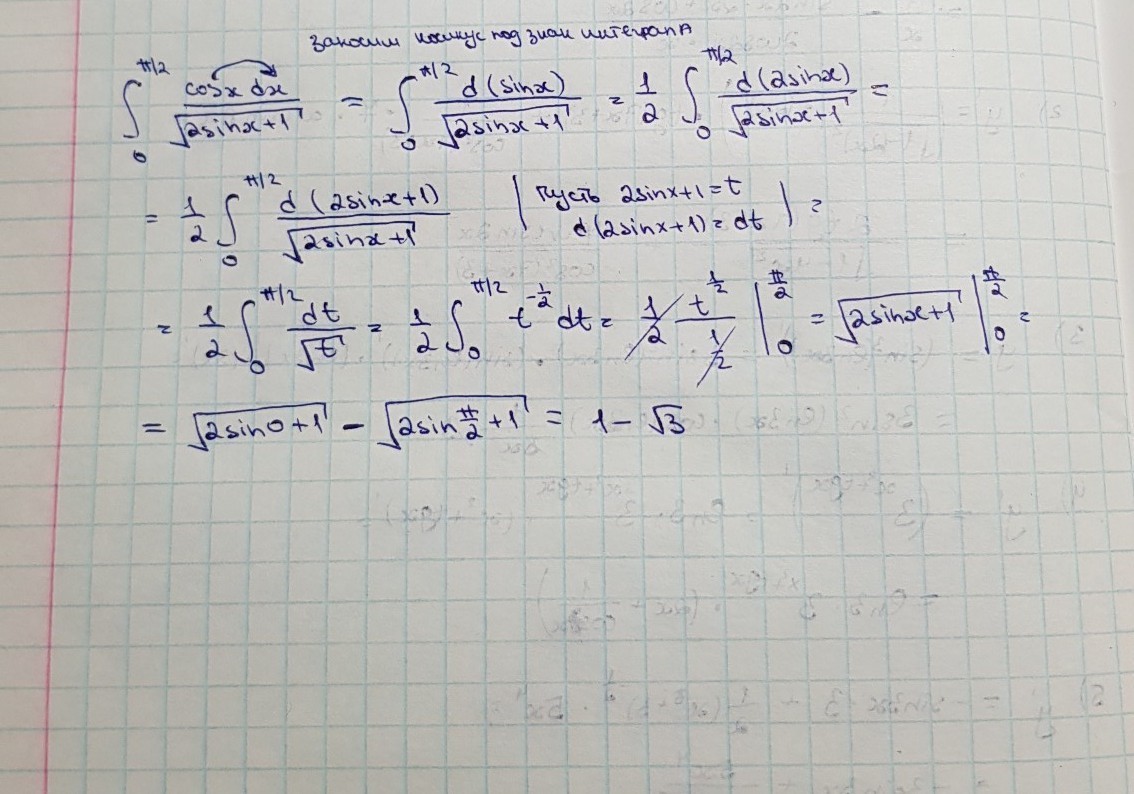 заносим косинус под знак интеграла
∫₀^(π/2) cosx dx / √(2sinx+1) = ∫₀^(π/2) d(sinx) / √(2sinx+1) = 1/2 ∫₀^(π/2) d(2sinx) / √(2sinx+1) =
= 1/2 ∫₀^(π/2) d(2sinx+1) / √(2sinx+1) | пусть 2sinx+1=t
d(2sinx+1)=dt | =
= 1/2 ∫₀^(π/2) dt/√t = 1/2 ∫₀^(π/2) t^(-1/2) dt = 1/2 t^(1/2) / (1/2) |₀^(π/2) = √(2sinx+1) |₀^(π/2) =
= √(2sin0+1) - √(2sin π/2 +1) = 1-√3